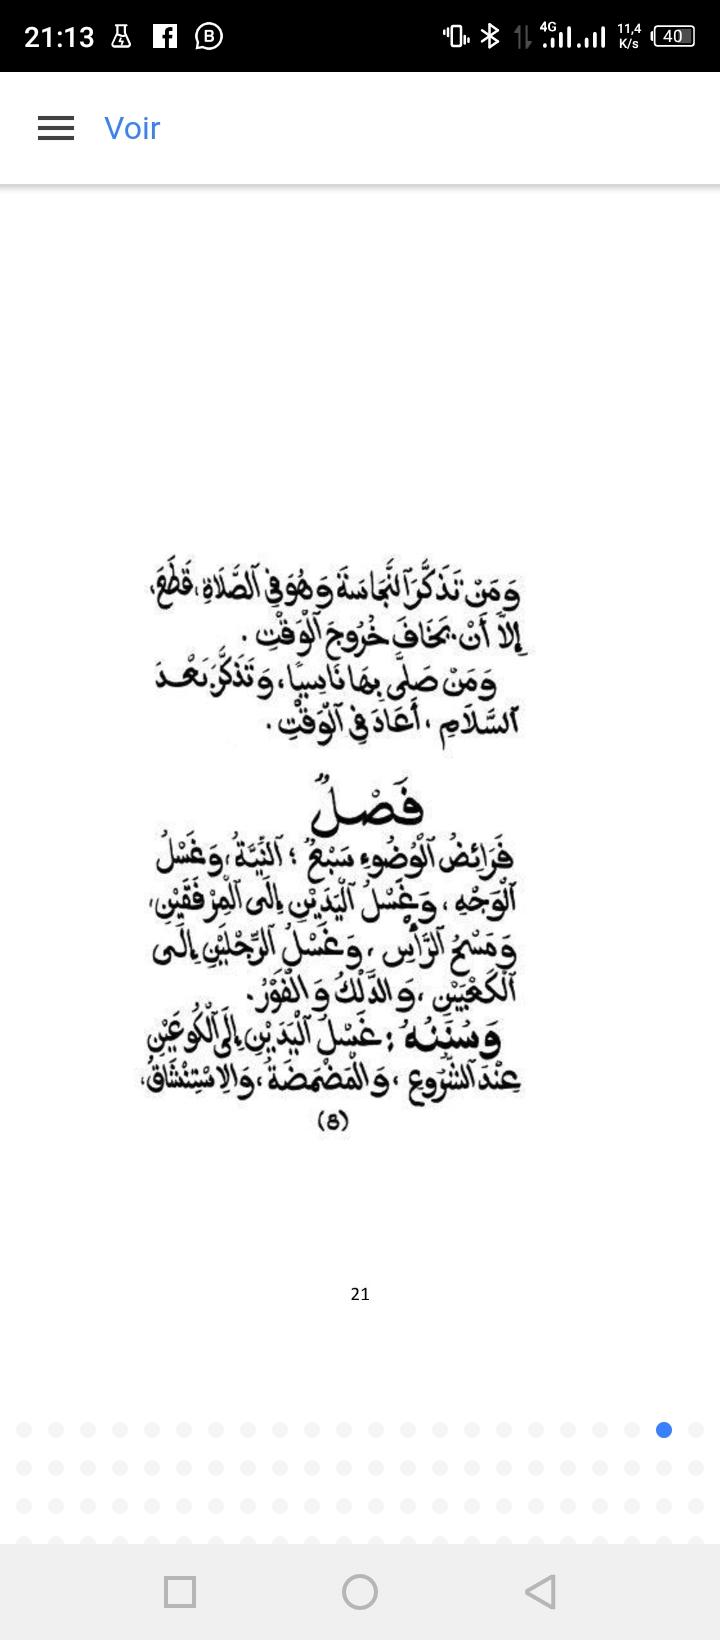 21:13
4G
11,4
K/s
40
Voir
وَمَنْ تَذَكَّرَ ٱلنَّجَاسَةَ وَهُوَ فِي ٱلصَّلَاةِ، قَطَعَ،
إِلَّا أَنْ يَخَافَ خُرُوجَ ٱلْوَقْتِ .
وَمَنْ صَلَّى بِهَا نَاسِيًا، وَتَذَكَّرَ بَعْدَ
ٱلسَّلَامِ ، أَعَادَ فِي ٱلْوَقْتِ .
فَصْلٌ
فَرَائِضُ ٱلْوُضُوءِ سَبْعٌ ؛ ٱلنِّيَّةُ، وَغَسْلُ
ٱلْوَجْهِ ، وَغَسْلُ ٱلْيَدَيْنِ إِلَى ٱلْمِرْفَقَيْنِ،
وَمَسْحُ ٱلرَّأْسِ ، وَغَسْلُ ٱلرِّجْلَيْنِ إِلَى
ٱلْكَعْبَيْنِ ، وَالدَّلْكُ وَالْفَوْرُ.
وَسُنَنُهُ ؛ غَسْلُ ٱلْيَدَيْنِ إِلَى ٱلْكُوعَيْنِ
عِنْدَ ٱلشُّرُوعِ ، وَالْمَضْمَضَةُ ، وَالِاسْتِنْشَاقُ،
(8)
21